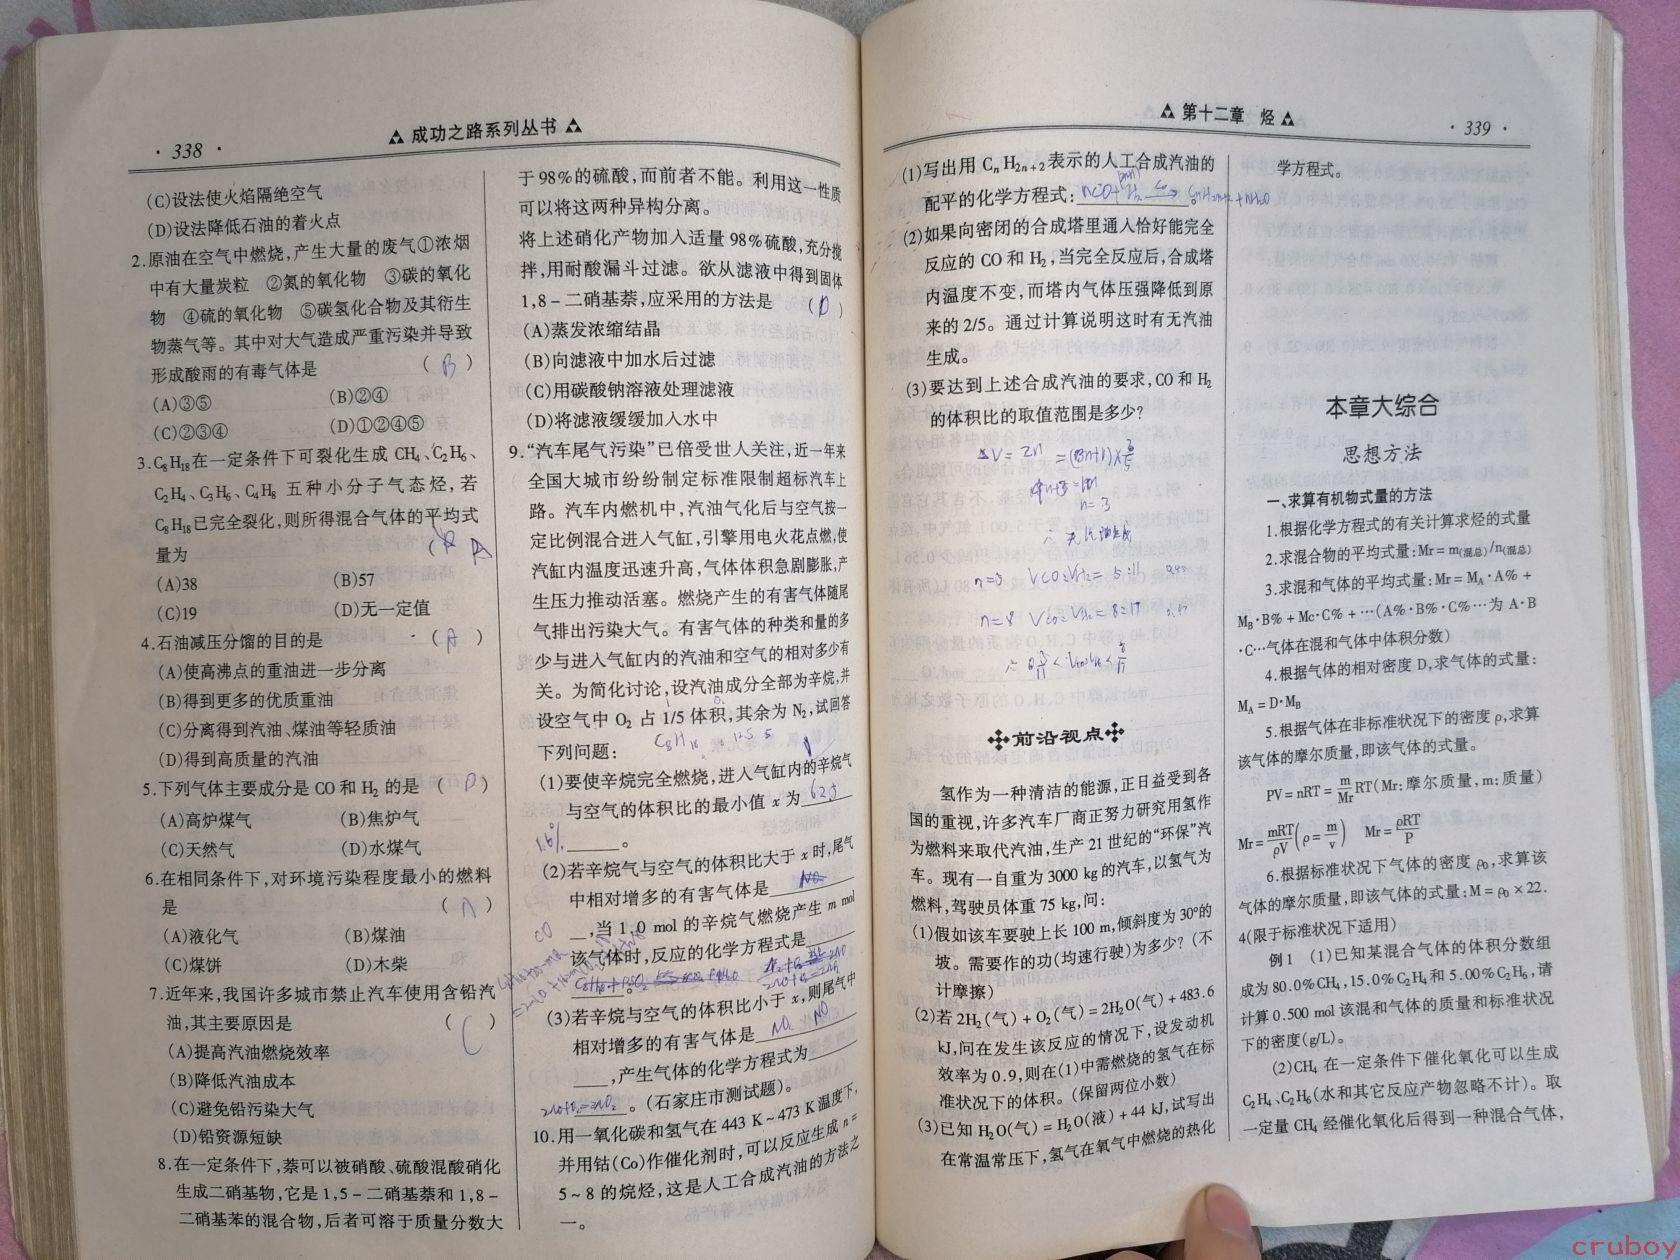 · 338 ·
成功之路系列丛书
(C)设法使火焰隔绝空气
(D)设法降低石油的着火点
2.原油在空气中燃烧,产生大量的废气①浓烟
中有大量炭粒 ②氮的氧化物 ③碳的氧化
物 ④硫的氧化物 ⑤碳氢化合物及其衍生
物蒸气等。其中对大气造成严重污染并导致
形成酸雨的有毒气体是 ( B )
(A)③⑤ (B)②④
(C)②③④ (D)①②④⑤
3.C₈H₁₈在一定条件下可裂化生成 CH₄、C₂H₆、
C₂H₄、C₃H₆、C₄H₈ 五种小分子气态烃,若
C₈H₁₈已完全裂化,则所得混合气体的平均式
量为 ( A
(A)38 (B)57
(C)19 (D)无一定值
4.石油减压分馏的目的是 ( A )
(A)使高沸点的重油进一步分离
(B)得到更多的优质重油
(C)分离得到汽油、煤油等轻质油
(D)得到高质量的汽油
5.下列气体主要成分是 CO 和 H₂ 的是 ( D )
(A)高炉煤气 (B)焦炉气
(C)天然气 (D)水煤气
6.在相同条件下,对环境污染程度最小的燃料
是 ( A )
(A)液化气 (B)煤油
(C)煤饼 (D)木柴
7.近年来,我国许多城市禁止汽车使用含铅汽
油,其主要原因是 ( C )
(A)提高汽油燃烧效率
(B)降低汽油成本
(C)避免铅污染大气
(D)铅资源短缺
8.在一定条件下,萘可以被硝酸、硫酸混酸硝化
生成二硝基物,它是 1,5-二硝基萘和 1,8-
二硝基苯的混合物,后者可溶于质量分数大
于 98%的硫酸,而前者不能。利用这一性质
可以将这两种异构分离。
将上述硝化产物加入适量 98%硫酸,充分搅
拌,用耐酸漏斗过滤。欲从滤液中得到固体
1,8-二硝基萘,应采用的方法是 ( D )
(A)蒸发浓缩结晶
(B)向滤液中加水后过滤
(C)用碳酸钠溶液处理滤液
(D)将滤液缓缓加入水中
9.“汽车尾气污染”已倍受世人关注,近一年来
全国大城市纷纷制定标准限制超标汽车上
路。汽车内燃机中,汽油气化后与空气按一
定比例混合进入气缸,引擎用电火花点燃,使
汽缸内温度迅速升高,气体体积急剧膨胀,产
生压力推动活塞。燃烧产生的有害气体随尾
气排出污染大气。有害气体的种类和量的多
少与进入气缸内的汽油和空气的相对多少有
关。为简化讨论,设汽油成分全部为辛烷,并
设空气中 O₂ 占 1/5 体积,其余为 N₂,试回答
下列问题: C₈H₁₈ 12.5
(1)要使辛烷完全燃烧,进入气缸内的辛烷气
与空气的体积比的最小值 x 为 62.5
1.6% 。
(2)若辛烷气与空气的体积比大于 x 时,尾气
中相对增多的有害气体是 NO
CO ,当 1.0 mol 的辛烷气燃烧产生 m mol
该气体时,反应的化学方程式是
。
(3)若辛烷与空气的体积比小于 x,则尾气中
相对增多的有害气体是 NO₂ NO
,产生气体的化学方程式为
2NO+O₂=2NO₂ 。(石家庄市测试题)。
10.用一氧化碳和氢气在 443 K~473 K 温度下,
并用钴(Co)作催化剂时,可以反应生成 n=
5~8 的烷烃,这是人工合成汽油的方法之
一。
第十二章 烃
· 339 ·
(1)写出用 CₙH₂ₙ₊₂表示的人工合成汽油的
配平的化学方程式: nCO+(2n+1)H₂ → CnH2n+2+nH₂O
(2)如果向密闭的合成塔里通入恰好能完全
反应的 CO 和 H₂,当完全反应后,合成塔
内温度不变,而塔内气体压强降低到原
来的 2/5。通过计算说明这时有无汽油
生成。
(3)要达到上述合成汽油的要求,CO 和 H₂
的体积比的取值范围是多少?
ΔV= 2n =(3n+1)×3/5
n=3
∴ 无汽油生成
n=5 VCO:VH₂= 5:11
n=8 VCO:VH₂= 8:17
前沿视点
氢作为一种清洁的能源,正日益受到各
国的重视,许多汽车厂商正努力研究用氢作
为燃料来取代汽油,生产 21 世纪的“环保”汽
车。现有一自重为 3000 kg 的汽车,以氢气为
燃料,驾驶员体重 75 kg,问:
(1)假如该车要驶上长 100 m,倾斜度为 30°的
坡。需要作的功(均速行驶)为多少?(不
计摩擦)
(2)若 2H₂(气)+O₂(气)=2H₂O(气)+483.6
kJ,问在发生该反应的情况下,设发动机
效率为 0.9,则在(1)中需燃烧的氢气在标
准状况下的体积。(保留两位小数)
(3)已知 H₂O(气)=H₂O(液)+44 kJ,试写出
在常温常压下,氢气在氧气中燃烧的热化
学方程式。
本章大综合
思想方法
一、求算有机物式量的方法
1.根据化学方程式的有关计算求烃的式量
2.求混合物的平均式量:Mr=m(混总)/n(混总)
3.求混和气体的平均式量:Mr=M_A·A%+
M_B·B%+Mc·C%+…(A%·B%·C%…为 A·B
·C…气体在混和气体中体积分数)
4.根据气体的相对密度 D,求气体的式量:
M_A=D·M_B
5.根据气体在非标准状况下的密度 ρ,求算
该气体的摩尔质量,即该气体的式量。
PV=nRT=m/Mr RT(Mr:摩尔质量,m:质量)
Mr=mRT/ρV(ρ=m/v) Mr=ρRT/P
6.根据标准状况下气体的密度 ρ₀,求算该
气体的摩尔质量,即该气体的式量:M=ρ₀×22.
4(限于标准状况下适用)
例 1 (1)已知某混合气体的体积分数组
成为 80.0%CH₄,15.0%C₂H₄和 5.00%C₂H₆,请
计算 0.500 mol 该混和气体的质量和标准状况
下的密度(g/L)。
(2)CH₄ 在一定条件下催化氧化可以生成
C₂H₄、C₂H₆(水和其它反应产物忽略不计)。取
一定量 CH₄ 经催化氧化后得到一种混合气体,
cruboy